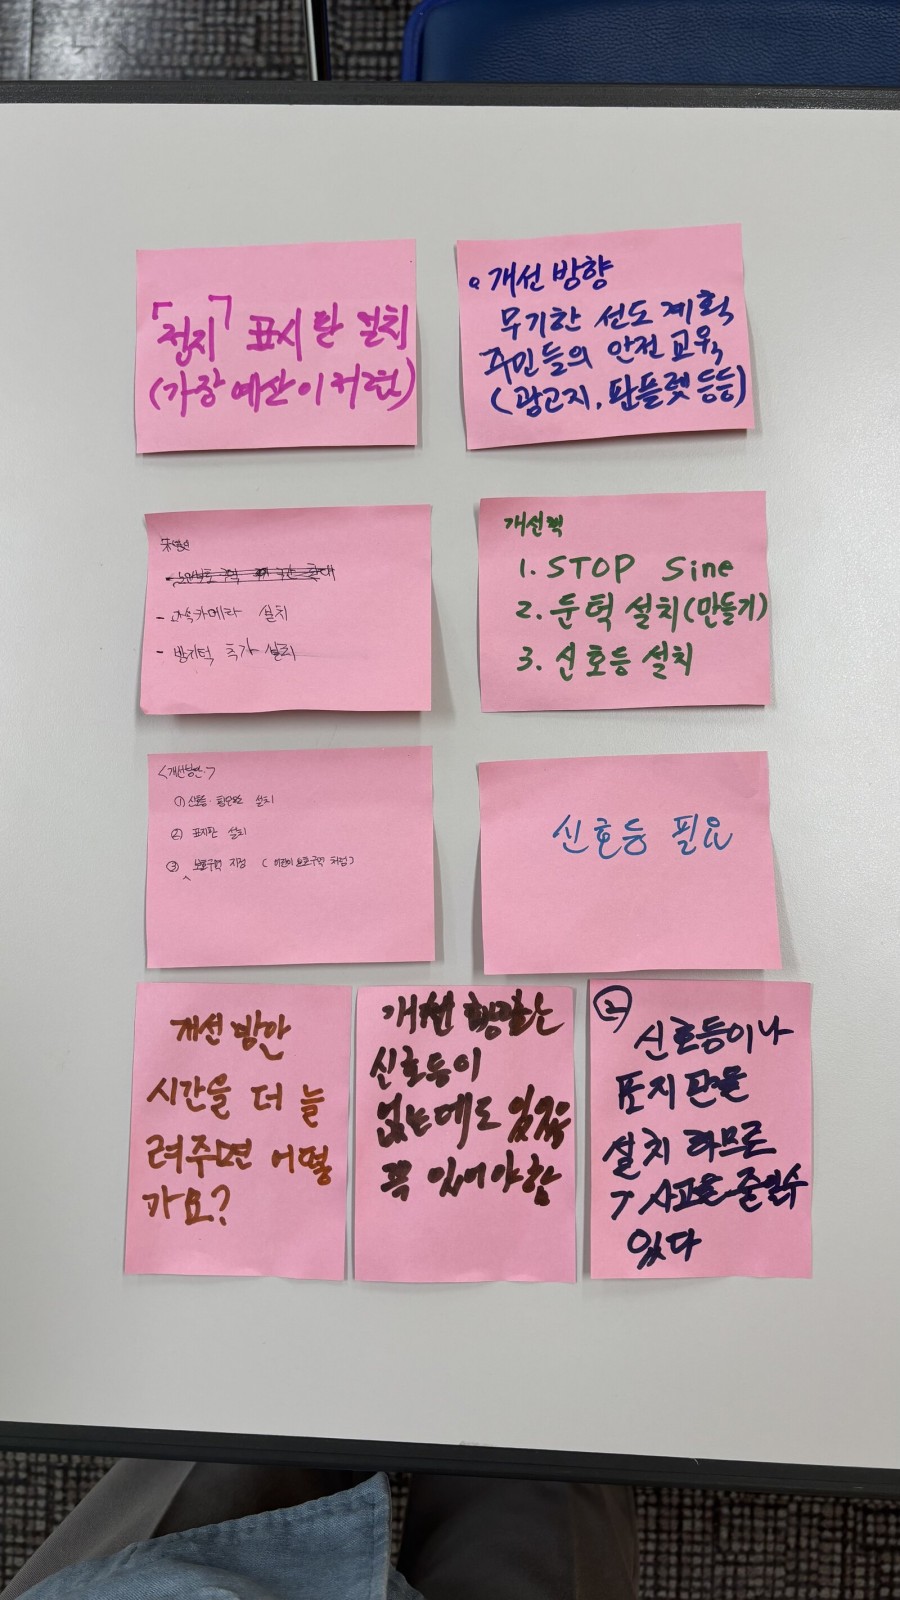 「정지」 표시판 설치
(가장 예산이 저렴)
개선 방향
무기한 선도 계획
주민들의 안전 교육
(광고지, 판플렛 등등)
- 과속카메라 설치
- 방지턱 추가 설치
개선책
1. STOP Sine
2. 둔턱 설치(만들기)
3. 신호등 설치
<개선방안>
① 신호등·횡단보도 설치
② 표지판 설치
③ 보호구역 지정 (어린이 보호구역 처럼)
신호등 필요
개선 방안
시간을 더 늘
려주면 어떻
까요?
개선
신호등이
없는데도
꼭 있어야함
2
신호등이나
표지판을
설치 하므로
사고을 줄일수
있다